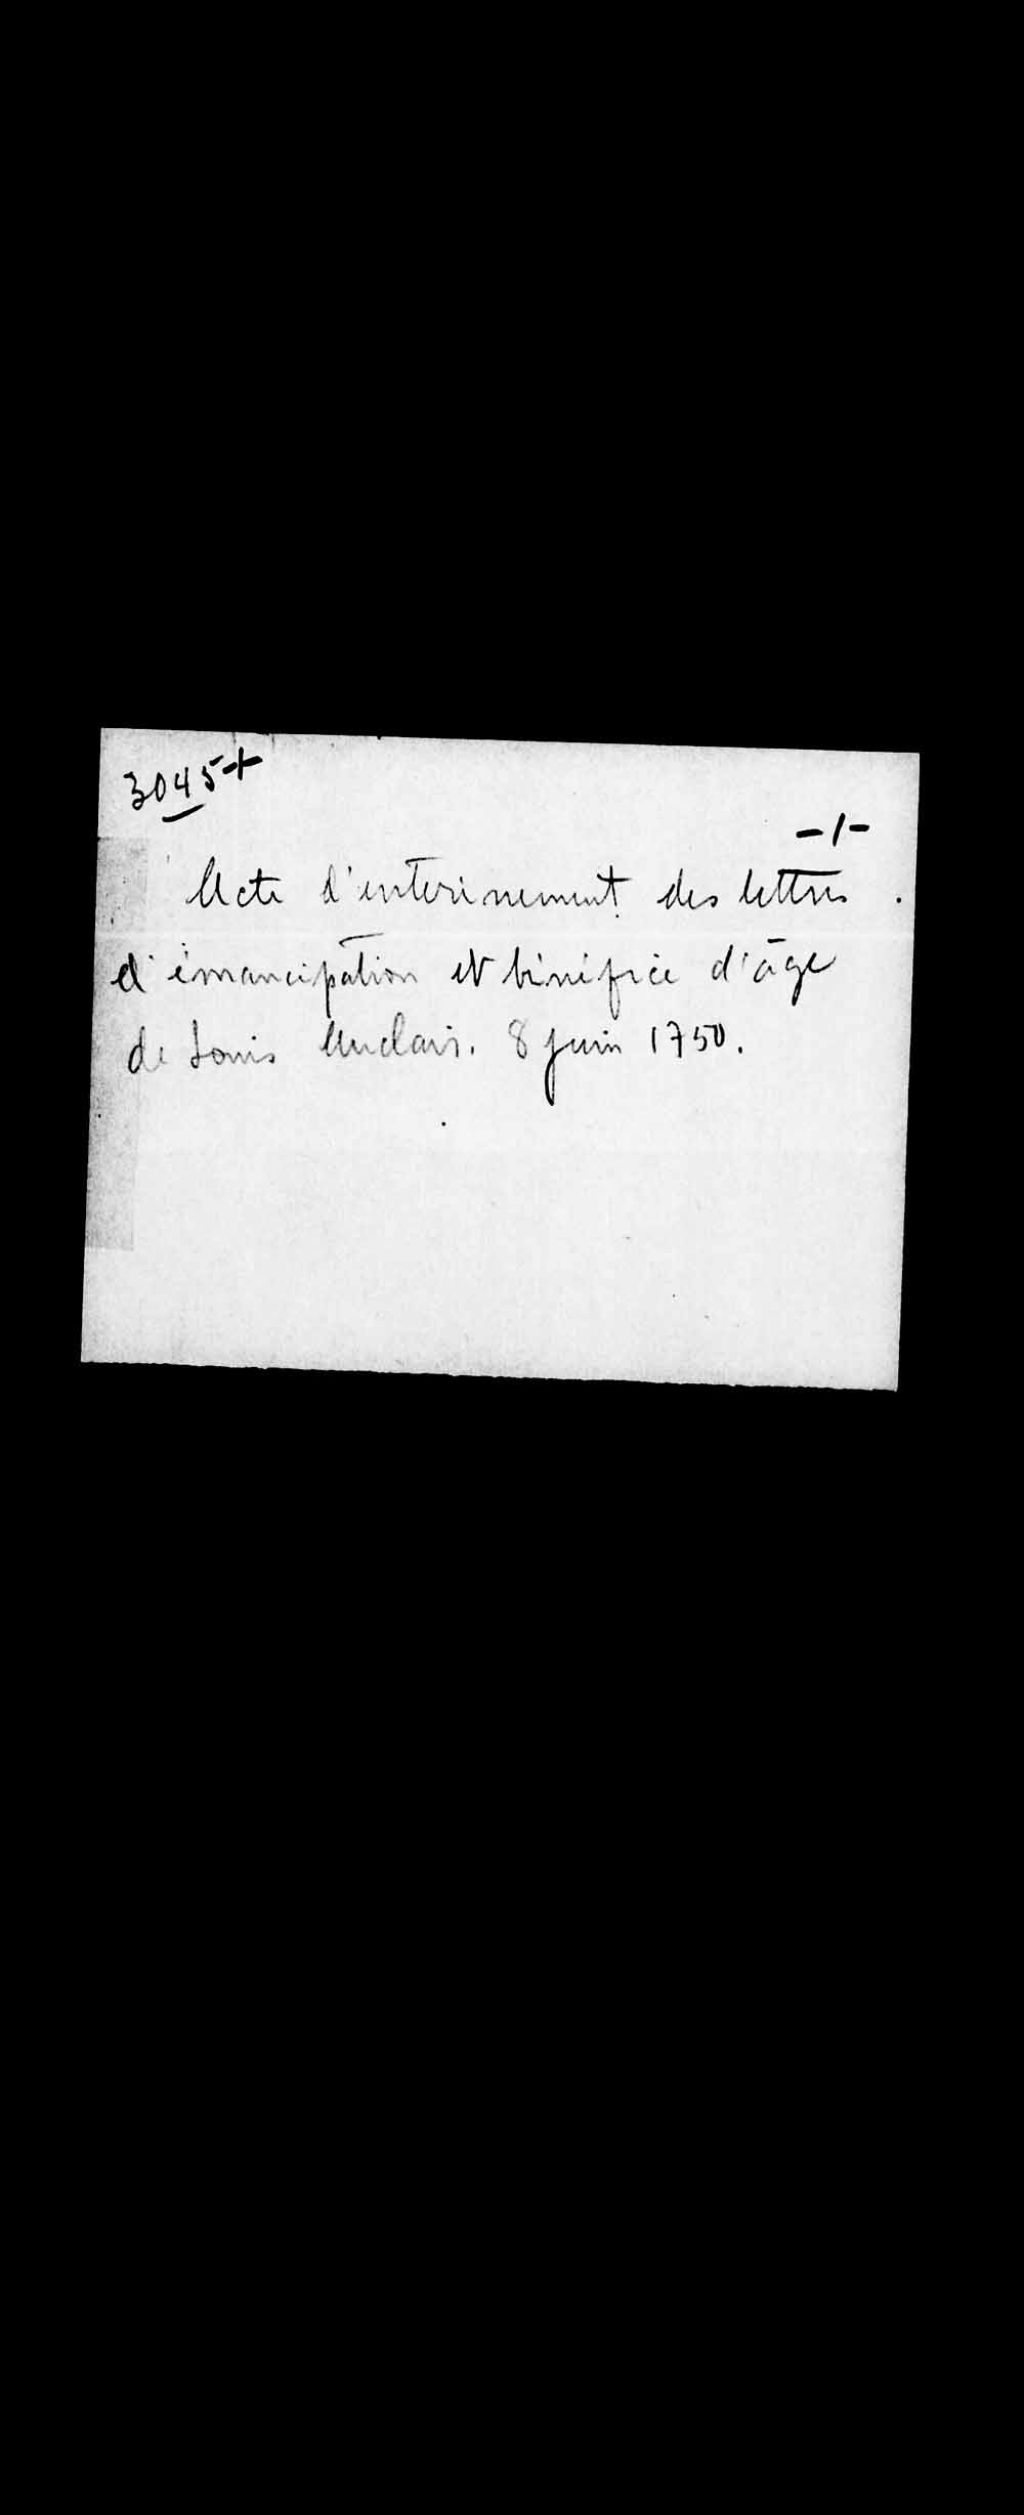 3045+
-1-
Acte d'enterinement des lettres
d'émancipation et bénéfice d'âge
de Louis Auclair. 8 juin 1750.